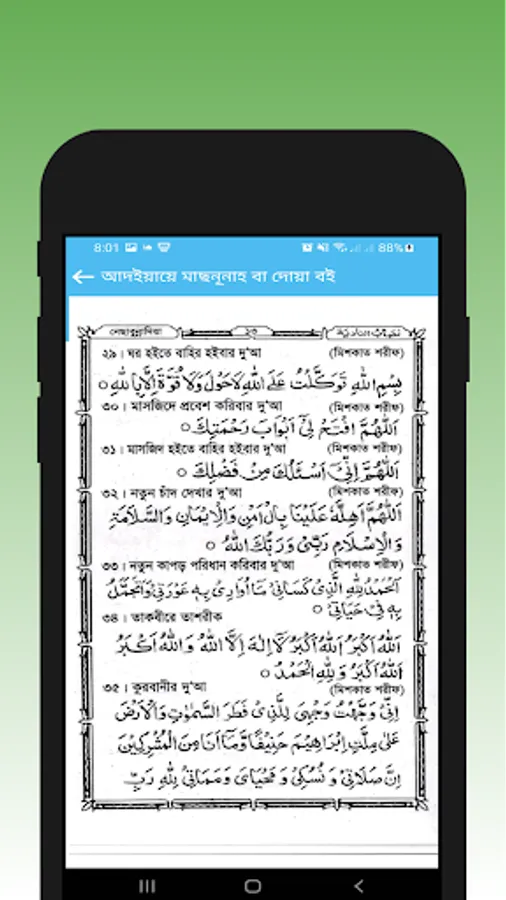 8:01 88%
আদইয়ায়ে মাছনূনাহ বা দোয়া বই
২৬
২৯। ঘর হইতে বাহির হইবার দু'আ (মিশকাত শরীফ)
بِسْمِ اللهِ تَوَكَّلْتُ عَلَى اللهِ لَاحَوْلَ وَلَا قُوَّةَ اِلَّا بِاللهِ ○
৩০। মাসজিদে প্রবেশ করিবার দু'আ (মিশকাত শরীফ)
اَللّٰهُمَّ افْتَحْ لِىْ اَبْوَابَ رَحْمَتِكَ ○
৩১। মাসজিদ হইতে বাহির হইবার দু'আ (মিশকাত শরীফ)
اَللّٰهُمَّ اِنِّىْ اَسْئَلُكَ مِنْ فَضْلِكَ ○
৩২। নতুন চাঁদ দেখার দু'আ (মিশকাত শরীফ)
اَللّٰهُمَّ اَهِلَّهٗ عَلَيْنَا بِالْاَمْنِ وَالْاِيْمَانِ وَالسَّلَامَةِ
وَالْاِسْلَامِ رَبِّىْ وَرَبُّكَ اللهُ ○
৩৩। নতুন কাপড় পরিধান করিবার দু'আ (মিশকাত শরীফ)
اَلْحَمْدُ لِلّٰهِ الَّذِىْ كَسَانِىْ مَا اُوَارِىْ بِهٖ عَوْرَتِىْ وَاَتَجَمَّلُ
بِهٖ فِىْ حَيَاتِىْ ○
৩৪। তাকবীরে তাশরীক
اَللهُ اَكْبَرُ اَللهُ اَكْبَرُ لَا اِلٰهَ اِلَّا اللهُ وَاللهُ اَكْبَرُ
اَللهُ اَكْبَرُ وَلِلّٰهِ الْحَمْدُ ○
৩৫। কুরবানীর দু'আ (মিশকাত শরীফ)
اِنِّىْ وَجَّهْتُ وَجْهِىَ لِلَّذِىْ فَطَرَ السَّمٰوٰتِ وَالْاَرْضَ
عَلٰى مِلَّتِ اِبْرَاهِيْمَ حَنِيْفًا وَّمَا اَنَا مِنَ الْمُشْرِكِيْنَ
اِنَّ صَلَاتِىْ وَ نُسُكِىْ وَ مَحْيَاىَ وَمَمَاتِىْ لِلّٰهِ رَبِّ